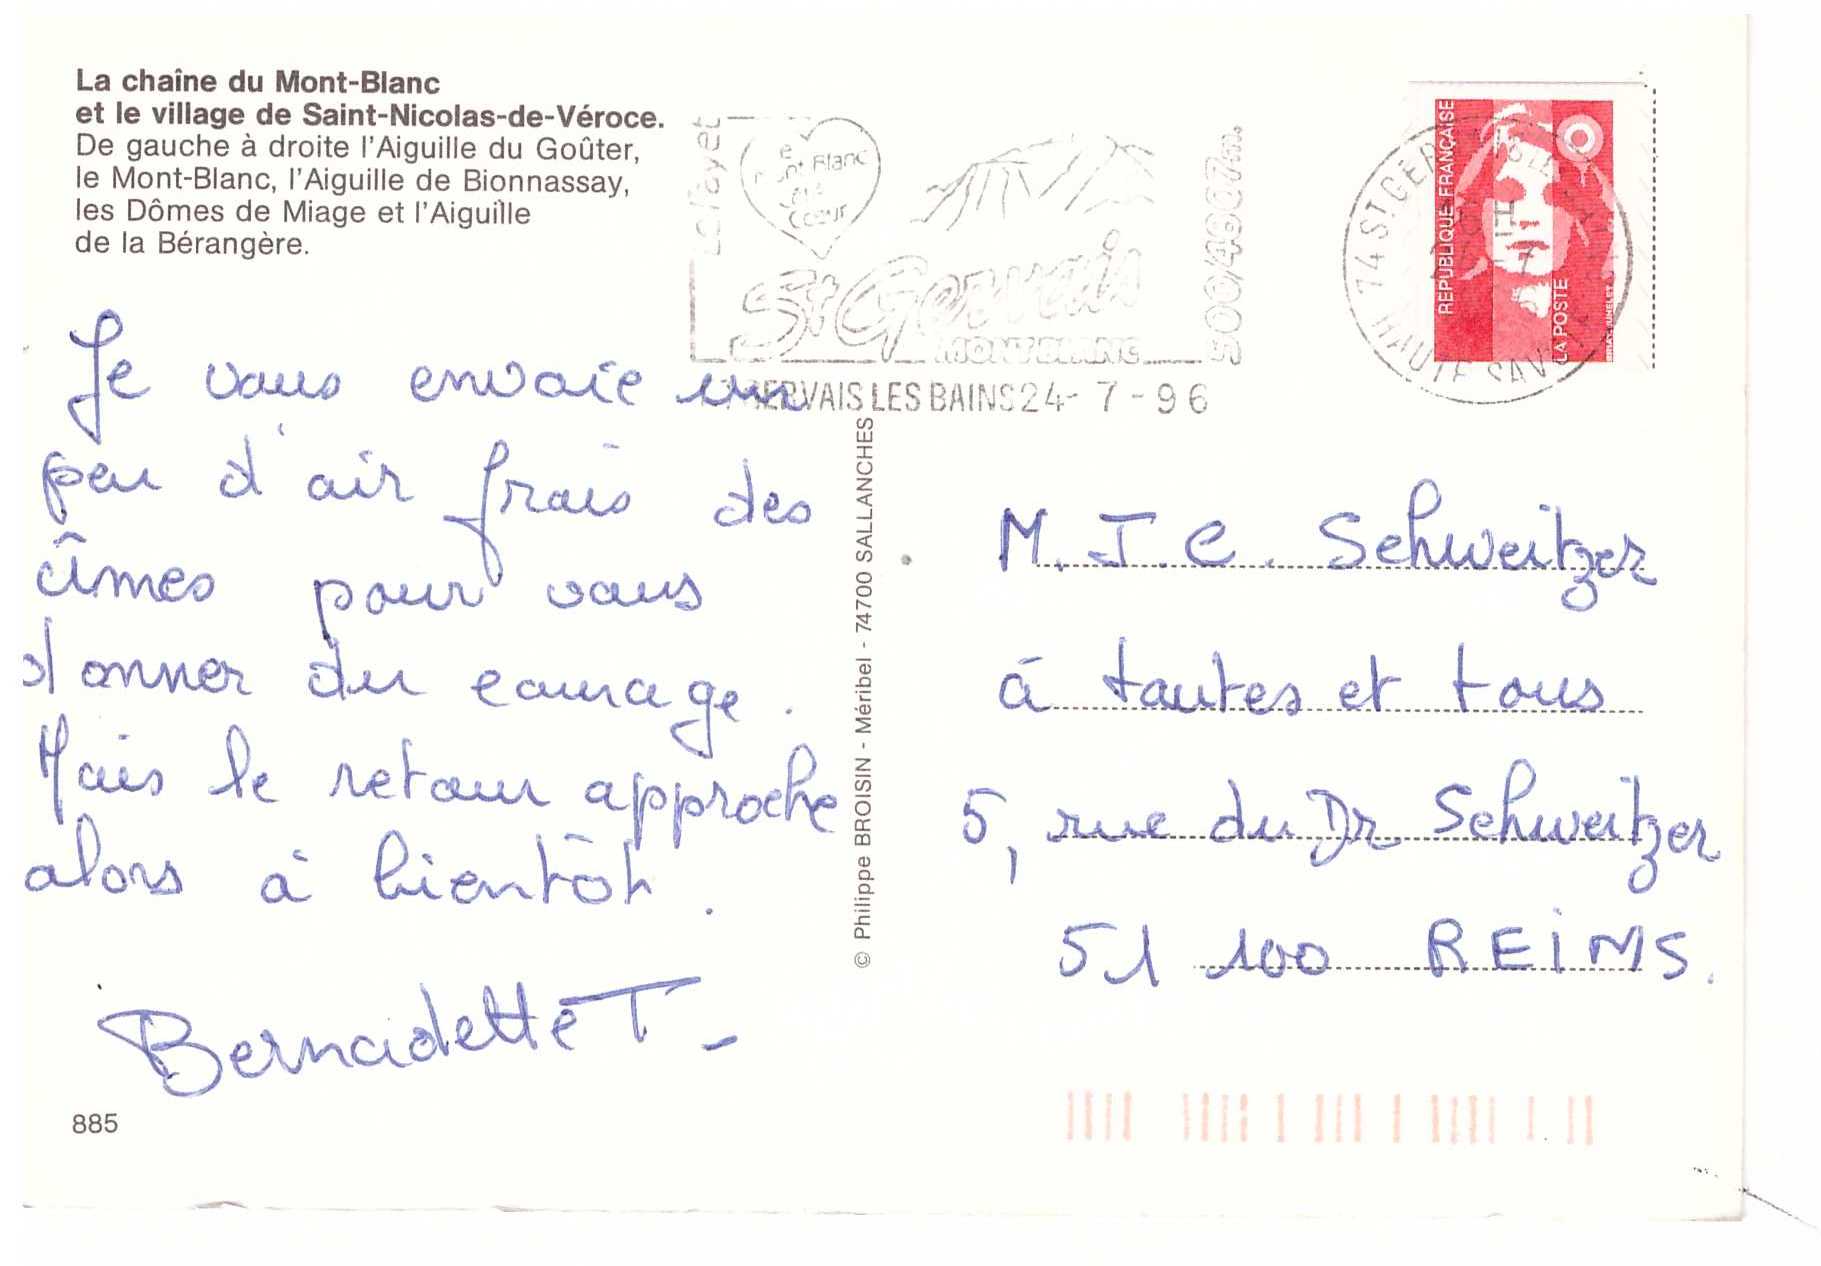 La chaîne du Mont-Blanc
et le village de Saint-Nicolas-de-Véroce.
De gauche à droite l'Aiguille du Goûter,
le Mont-Blanc, l'Aiguille de Bionnassay,
les Dômes de Miage et l'Aiguille
de la Bérangère.
Je vous envoie un
peu d'air frais des
cîmes pour vous
donner du courage.
Mais le retour approche
alors à bientôt.
Bernadette T_
885
© Philippe BROISIN - Méribel - 74700 SALLANCHES
Blanc
coeur
St Gervais
MONT BLANC
GERVAIS LES BAINS 24-7-96
74 ST GER
HAUTE SAVOIE
REPUBLIQUE FRANÇAISE
LA POSTE
M. J.C. Schweitzer
à toutes et tous
5, rue du Dr Schweitzer
51 100 REIMS.